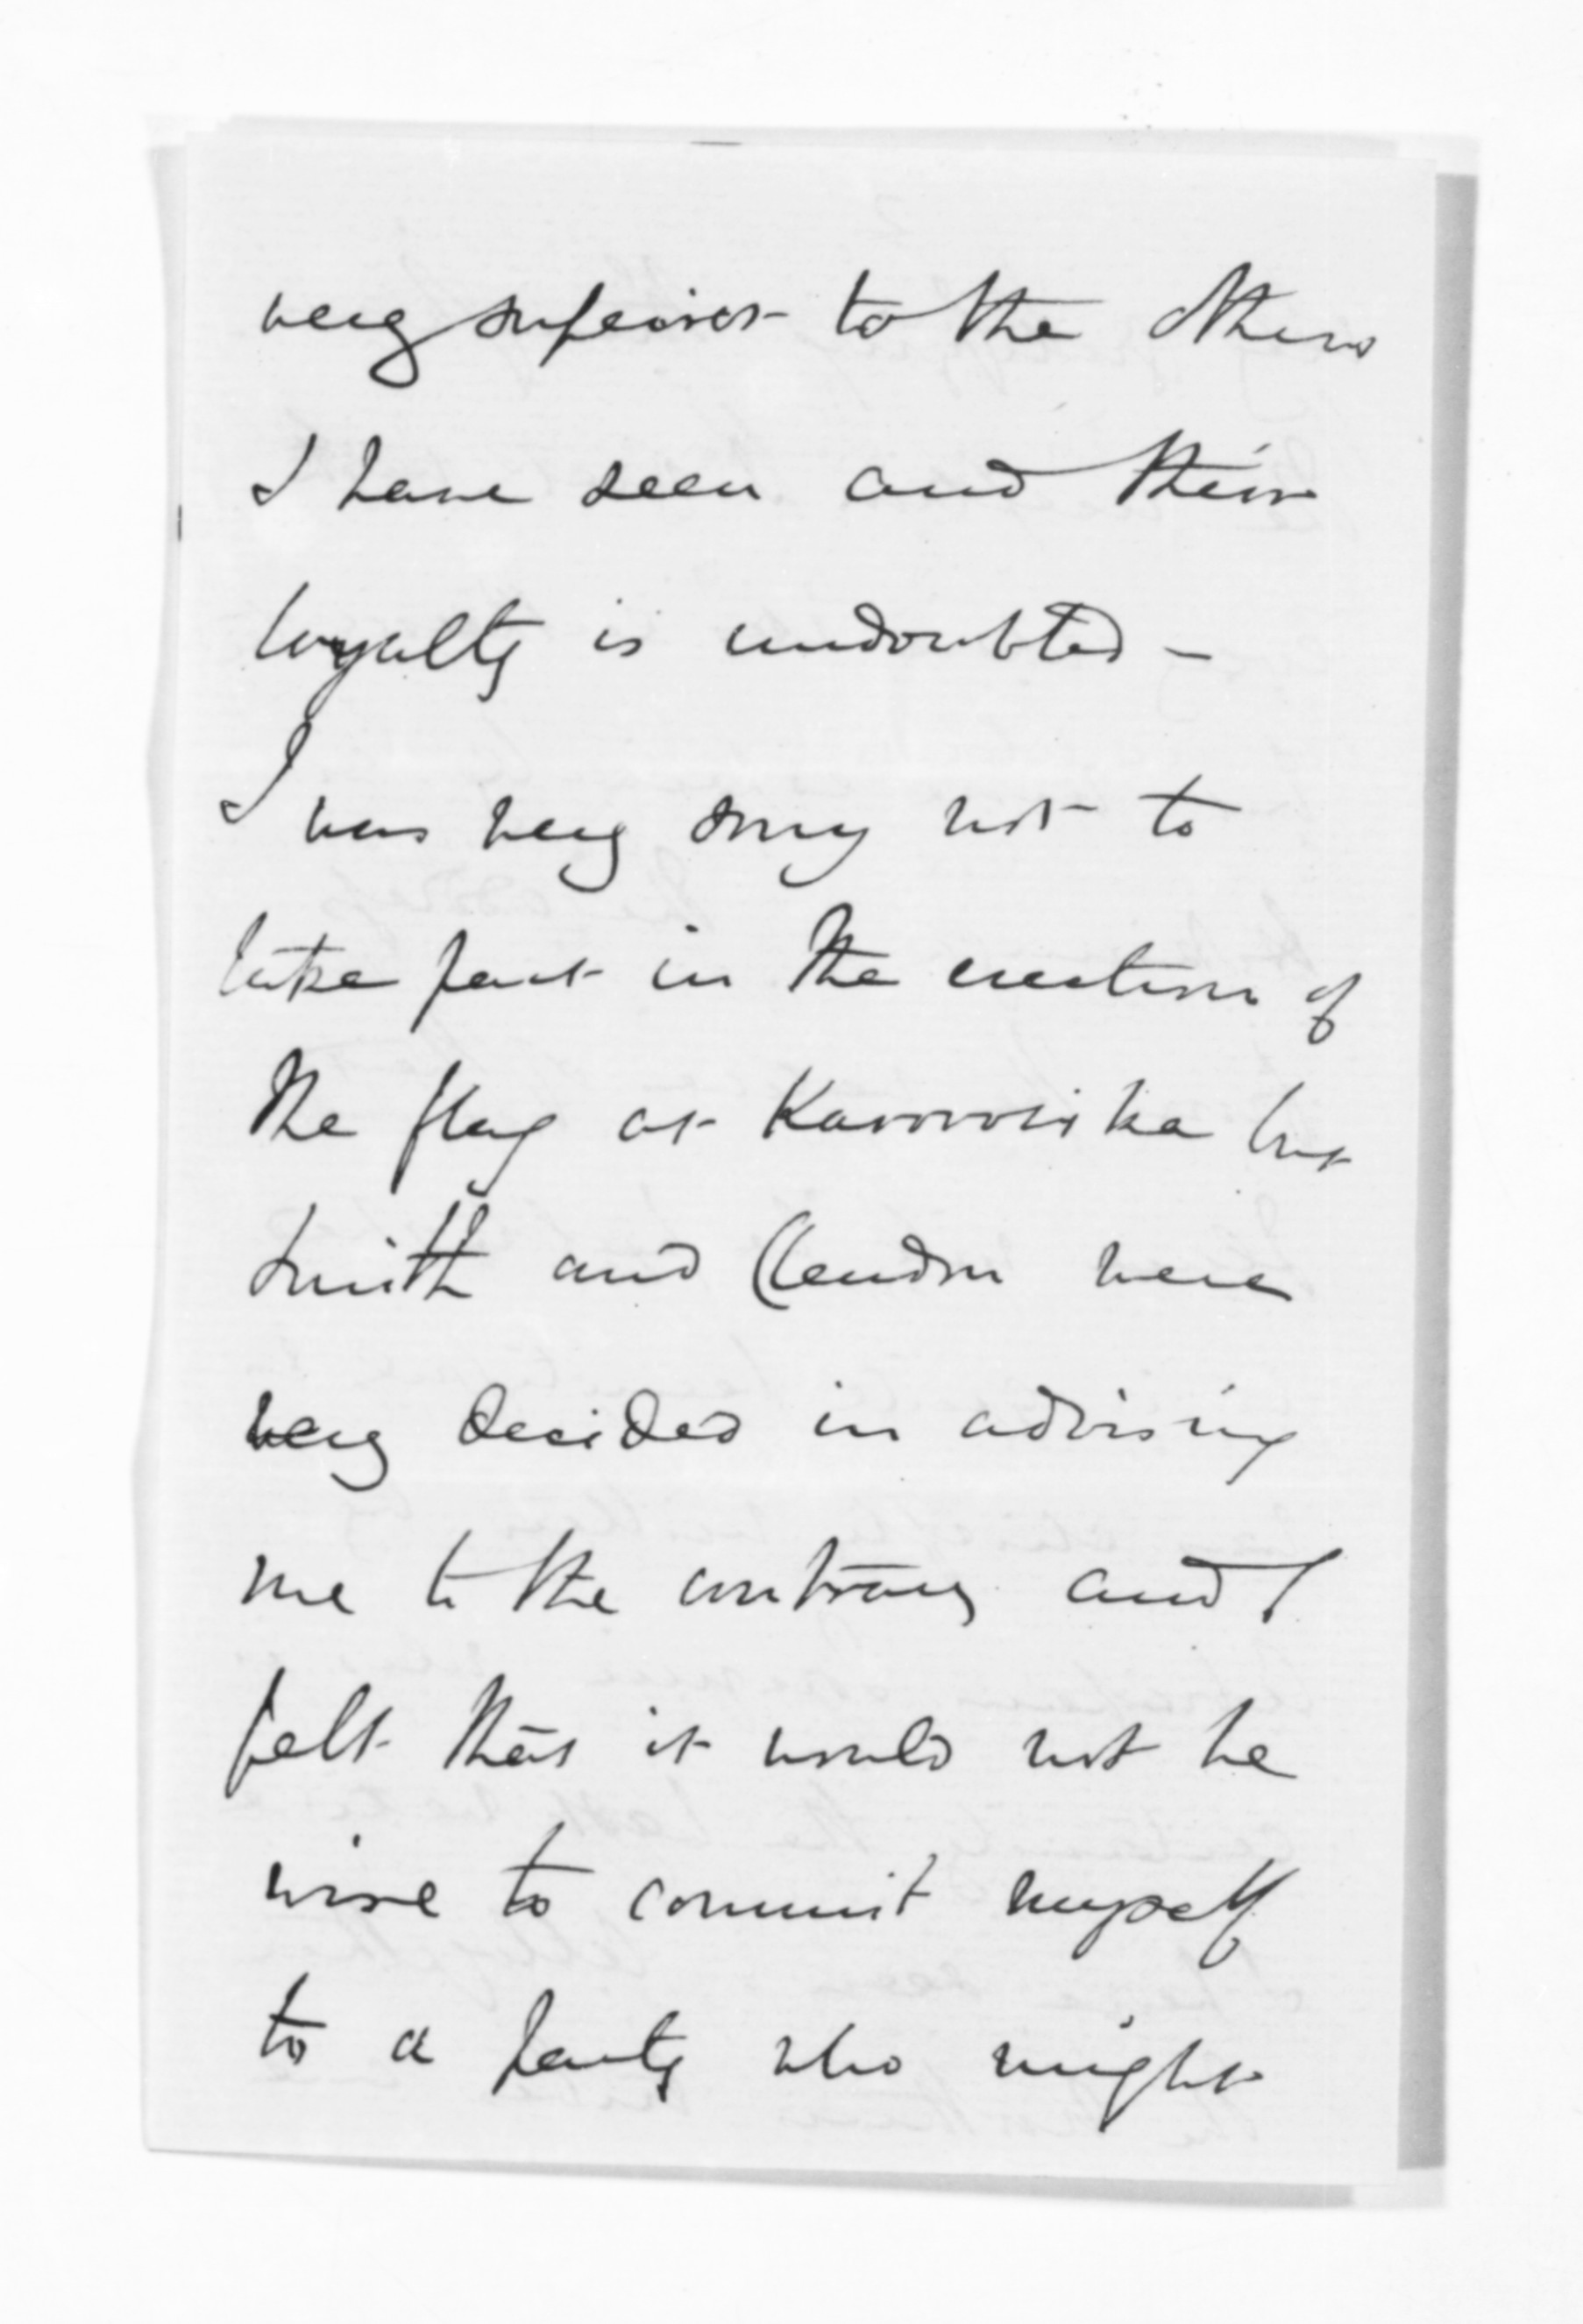 very superior to the others
I have seen and their
loyalty is undoubted -
I was very sorry not to
take part in the erection of
the flag at Kawowika but
Smith and Clendon were
very decided in advising
me to the contrary and I
felt that it would not be
wise to commit myself
to a party who might